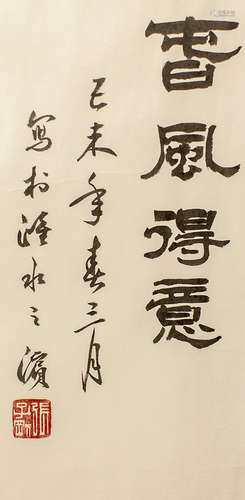 旾風得意
己未年春三月
寫於水之濱